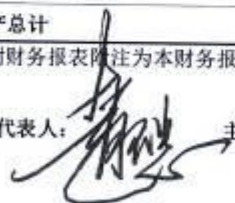 产总计
财务报表附注为本财务报
代表人：
主